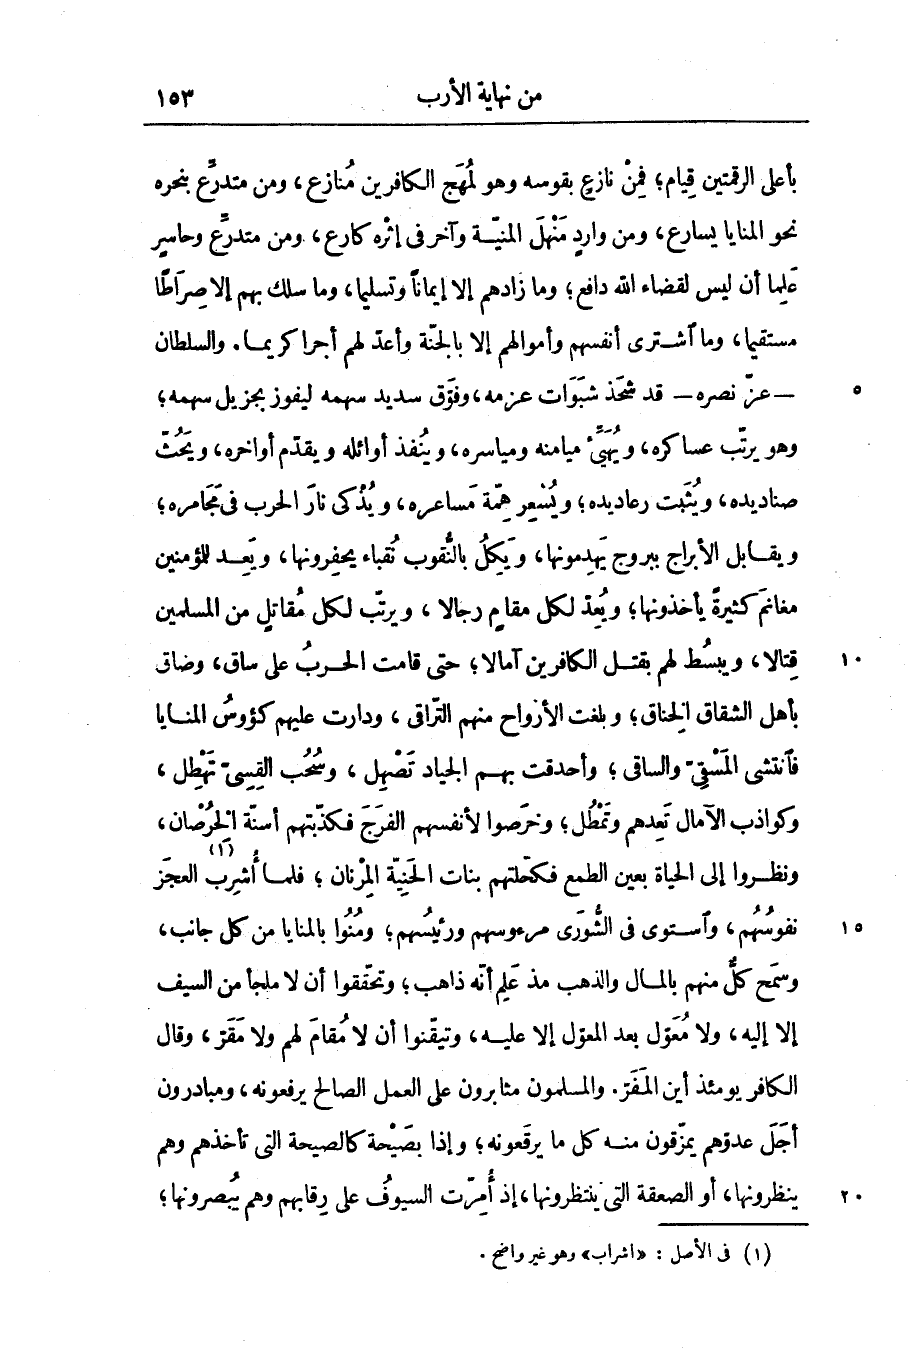 من نهاية الأرب ١٥٣
بأعلى الرقمتين قِيام؛ فمِنْ نازعٍ بقوسه وهو لمُهَج الكافرين مُنازع، ومن متدرِّع بنحره
نحو المنايا يسارع، ومن واردٍ مَنْهلَ المنيّة وآخر فى إثْره كارع، ومن متدرِّع وحاسرٍ
عَلِما أن ليس لقضاء الله دافع؛ وما زادهم إلا إيماناً وتسليما، وما سلك بهم إلا صِرَاطًا
مستقيما، وما ٱشــترى أنفسهم وأموالهم إلا بالجنّة وأعدّ لهم أجرا كريمــا. والسلطان
— عزّ نصره — قد شَحَذ شَبَوَات عزمه، وفوّق سديد سهمه ليفوز بجزيل سهمه؛ ٥
وهو يرتّب عساكره، ويُهَيِّئُ ميامنه ومياسره، ويُنفذ أوائله ويقدّم أواخره، ويَحُثّ
صناديده، ويُثَبّت رعاديده؛ ويُسْعِر هِمّة مَساعره، ويُذْكى نارَ الحرب فى مَجَامره؛
ويقــابل الأبراج ببروج يَهدِمونها، ويَكِلُ بالنُّقوب نُقباء يحفِرونها، ويَعِــد للمؤمنين
مغانمَ كثيرةً يأخذونها؛ ويُعِدّ لكل مقامٍ رجالا ، ويرتّب لكل مُقاتلٍ من المسلمين
قِتالا، ويبسُط لهم بقتــل الكافرين آمالا؛ حتى قامت الحــربُ على ساق، وضاق ١٠
بأهل الشقاق الخِناق؛ وبلغت الأرواح منهم التّراقى ، ودارت عليهم كؤوسُ المنــايا
فٱنتشى المَسْقِىّ والساقى ؛ وأحدقت بهــم الجياد تَصْهِل ، وسُحُب القِسِىّ تَهْطِل ،
وكواذب الآمال تَعِدهم وتَمْطُل؛ وخرَصوا لأنفسهم الفرَجَ فكذّبتهم أسنّة الخِرْصان،
ونظــروا إلى الحياة بعين الطمع فكحّلتهم بنات الحَنِيّة المِرْنان ؛ فلمــا أُشرِب (١) العجزَ
نفوسُهُم، وٱســتوى فى الشُّورَى مرءوسهم ورئيسُهم؛ ومُنُوا بالمنايا من كل جانب، ١٥
وسمَح كلٌّ منهم بالمــال والذهب مذ عَلِم أنّه ذاهب؛ وتحقّقوا أن لا ملجأ من السيف
إلا إليه، ولا مُعَوّل بعد المعوّل إلا عليــه، وتيقّنوا أن لا مُقامَ لهم ولا مَقَرّ ، وقال
الكافر يومئذ أين المَفَرّ. والمسلمون مثابرون على العمل الصالح يرفعونه، ومبادرون
أجَلَ عدوّهم يمزّقون منــه كل ما يرقَعونه؛ وإذا بصَيْحة كالصيحة التى تأخذهم وهم
ينظرونها، أو الصعقة التى ينتظرونها، إذ أُمِرّت السيوفُ على رقابهم وهم يُبصرونها؛ ٢٠
(١) فى الأصل : «اشراب» وهو غير واضح .